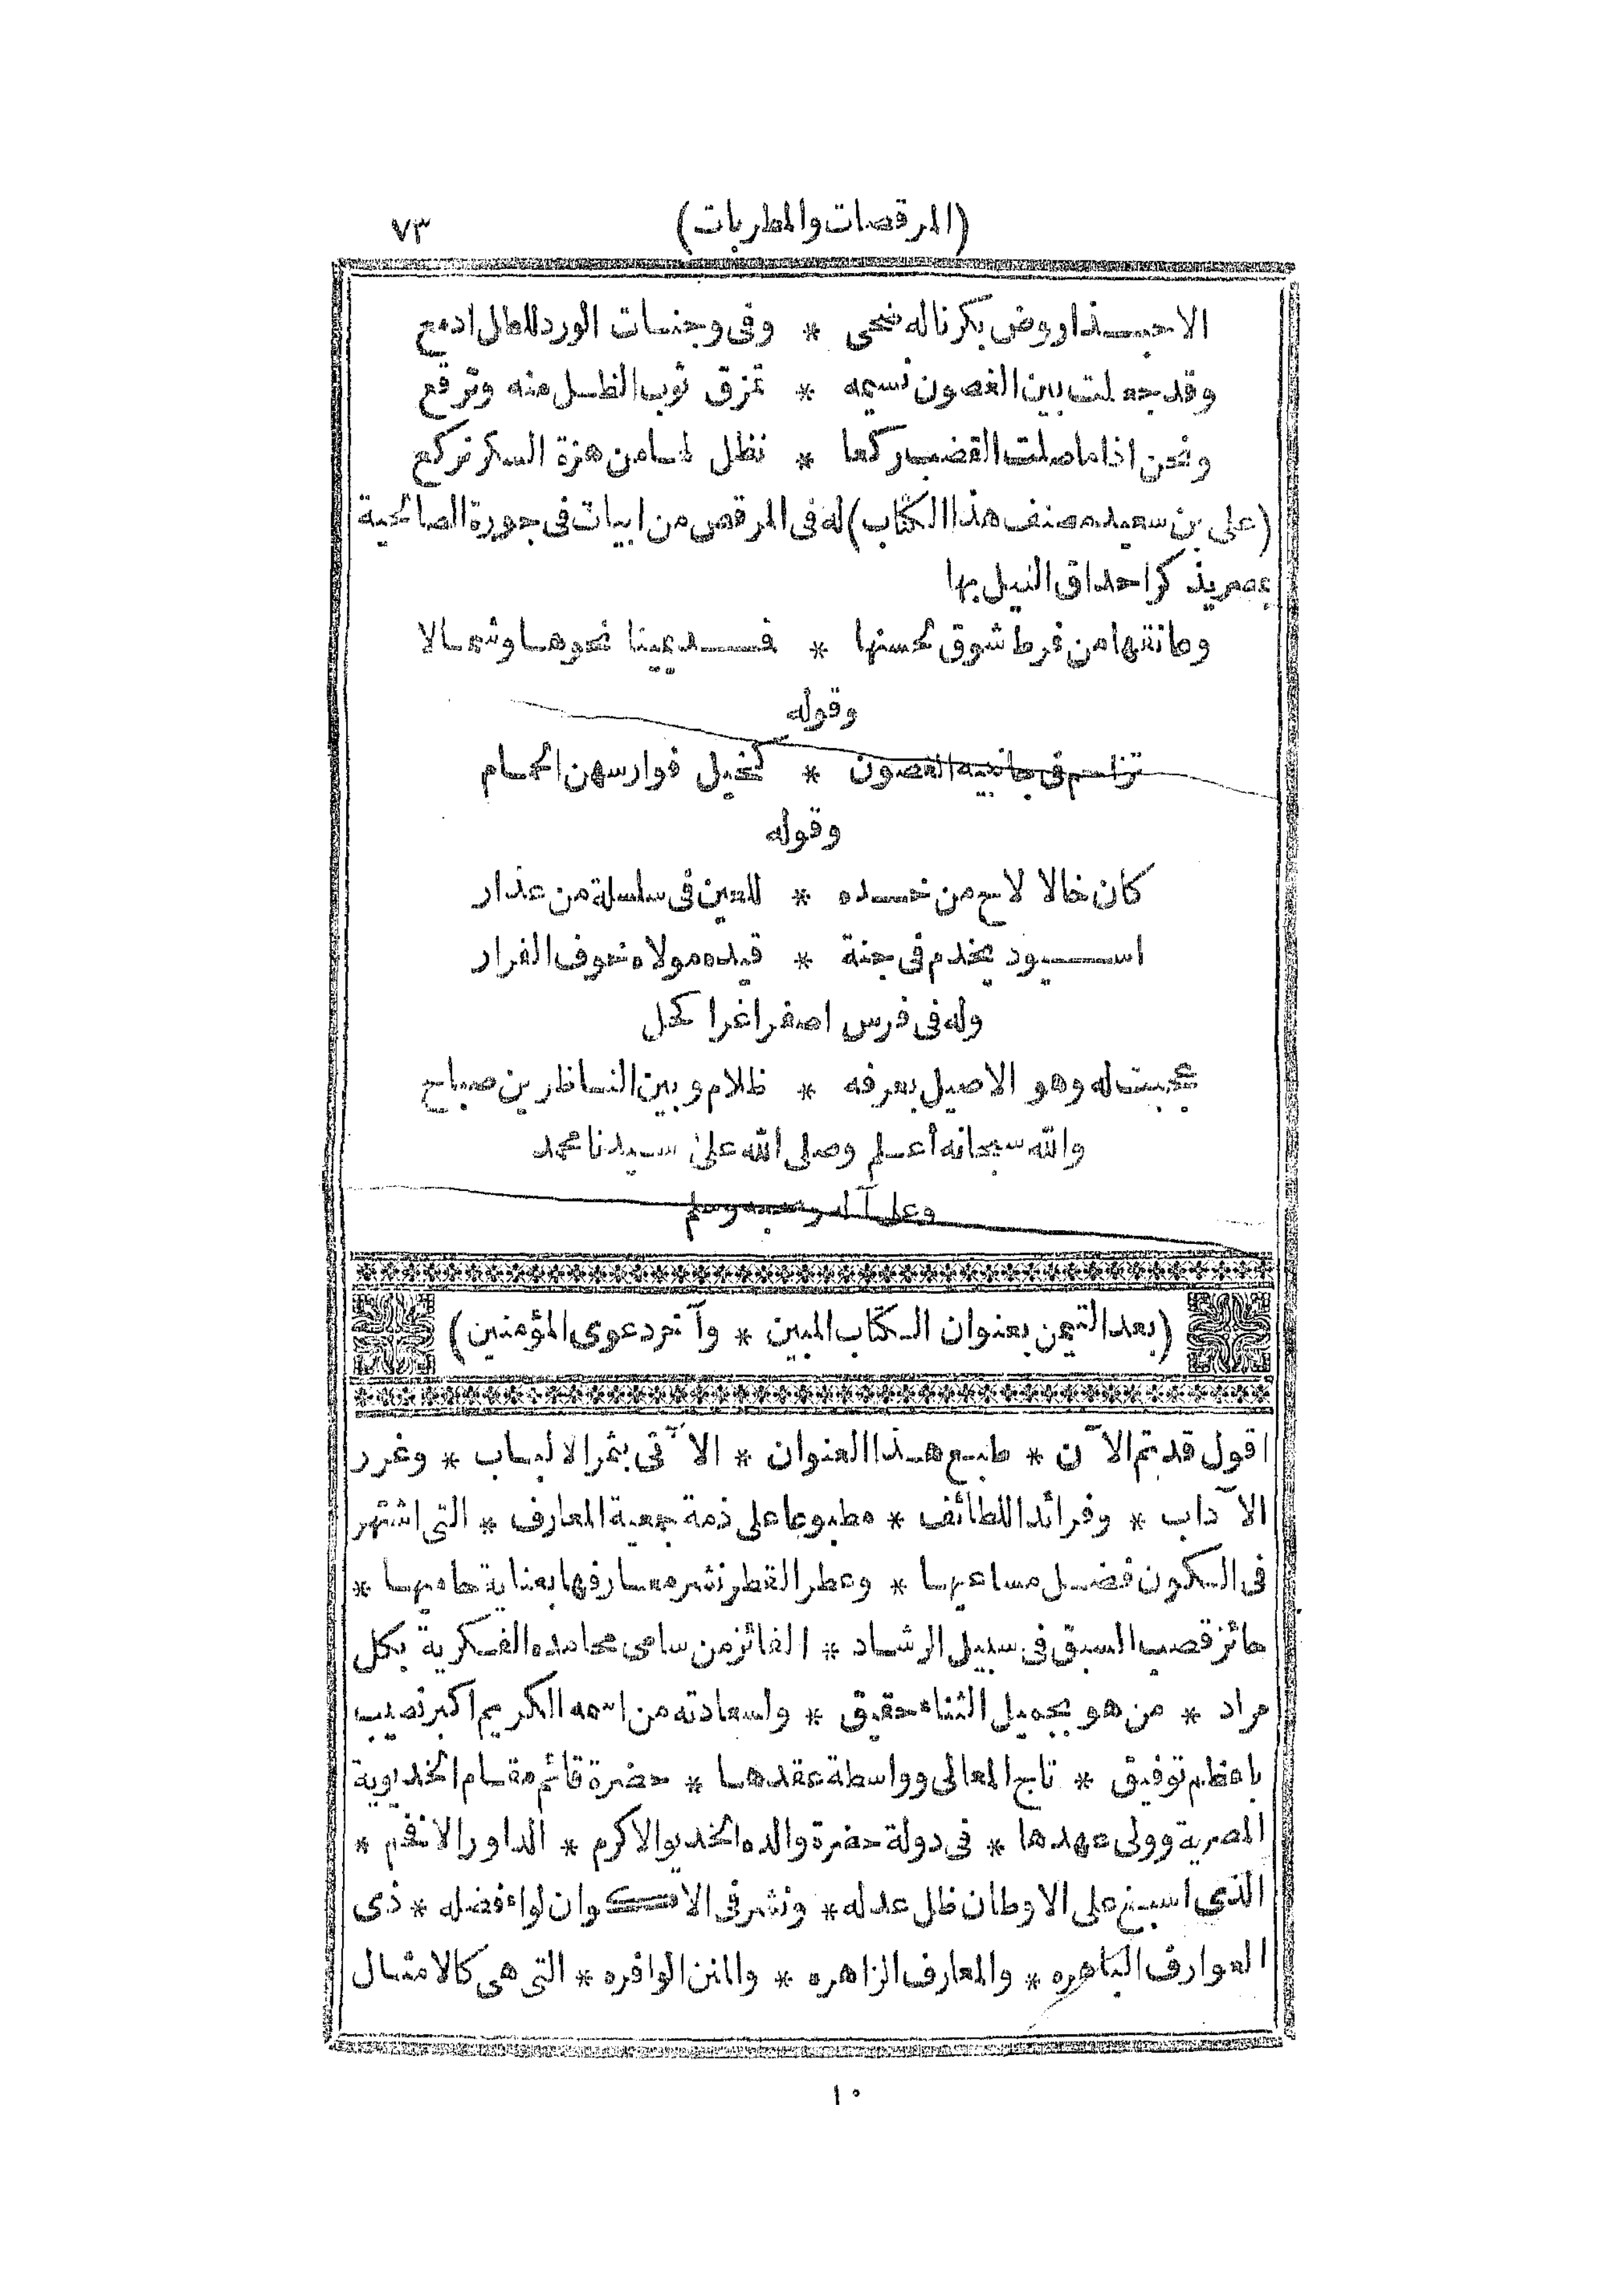 (المرقصات والمطربات) ٧٣
الا حبذا روض بكرنا له ضحى * وفى وجنات الورد للطل ادمع
وقد جعلت بين الغصون نسيمه * تمزق ثوب الظل منه وترقع
ونحن اذا ما صلت القضب ركعا * نظل لها من هزة السكر نركع
(على بن سعيد مصنف هذا الكتاب) له فى المرقص من ابيات فى جزيرة الصالحية
بمصر يذكر احداق النيل بها
وعانقها من فرط شوق لحسنها * فمد يمينا نحوها وشمالا
وقوله
فى جانبيه الغصون * كخيل فوارسهن الحمام
وقوله
كان خالا لاح من خده * للعين فى سلسلة من عذار
اسيود يخدم فى جنة * قيده مولاه خوف الفرار
وله فى فرس اصفر اغر اكحل
عجبت له وهو الاصيل بعرفه * ظلام وبين الناظرين صباح
والله سبحانه أعلم وصلى الله على سيدنا محمد
وعلى آله وصحبه وسلم
(بعد التيمن بعنوان الكتاب المبين * وآخر دعوى المؤمنين)
اقول قد تم الآن * طبع هذا العنوان * الآتى بثمر الالباب * وغرر
الآداب * وفرائد اللطائف * مطبوعا على ذمة جمعية المعارف * التى اشتهر
فى الكون فضل مساعيها * وعطر القطر نشر معارفها بعناية حاميها *
حائز قصب السبق فى سبيل الرشاد * الفائز من سامى محامده الفكرية بكل
مراد * من هو بجميل الثناء حقيق * ولسعادته من اسمه الكريم اكبر نصيب
باعظم توفيق * تاج المعالى وواسطة عقدها * حضرة قائم مقام الخديوية
المصرية وولى عهدها * فى دولة حضرة والده الخديو الاكرم * الداور الافخم *
الذى اسبغ على الاوطان ظل عدله * ونشر فى الاكوان لواء فضله * ذى
العوارف الباهره * والمعارف الزاهره * والمنن الوافره * التى هى كالامثال
١٠